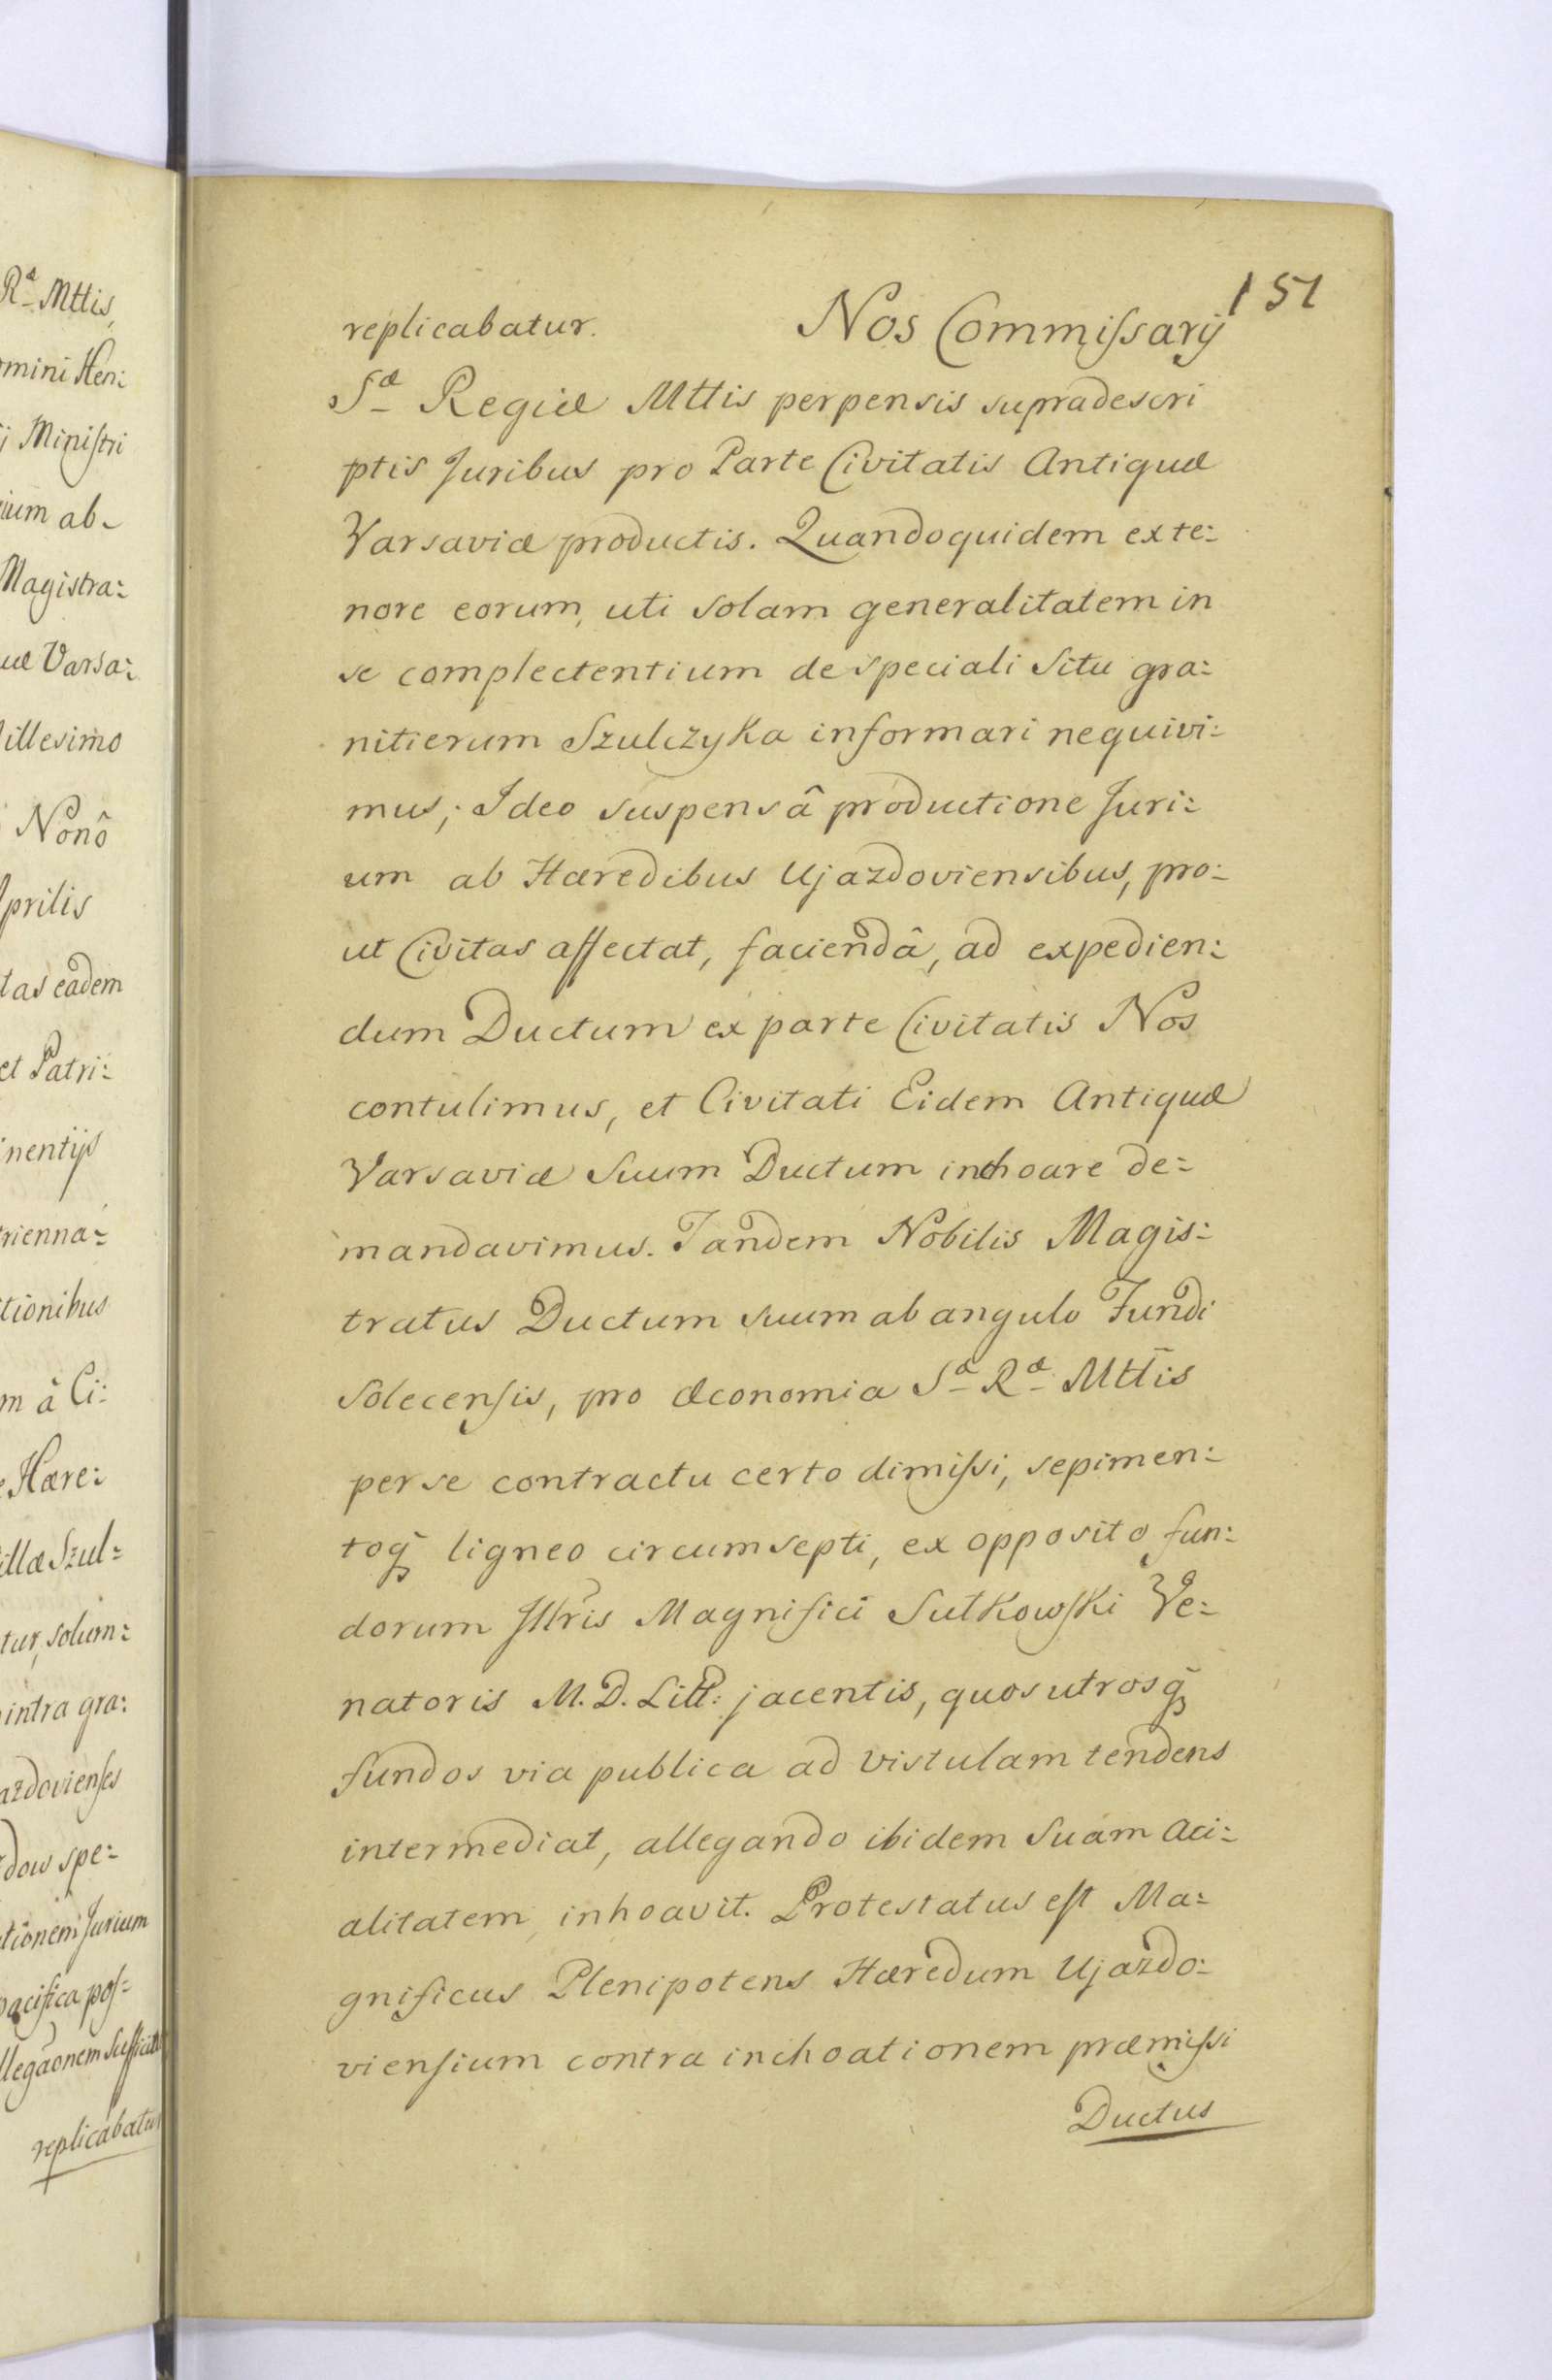 Ræ Mttis,
mini Hen:
Ministri
ium ab-
Magistra:
uæ Varsa:
illesimo
Nonô
prilis
tas eadem
et Patri:
nentijs
rienna:
tionibus
m â Ci:
Hære:
illæ Szul:
tur, solum:
intra gra:
azdovienses
dow spe:
tionem Jurium
pacifica pos:
llegaōnem
replicabatur
151
replicabatur. Nos Commissarij
Sæ Regiæ Mttis perpensis supradescri
ptis Juribus pro Parte Civitatis Antiquæ
Varsaviæ productis. Quandoquidem ex te:
nore eorum, uti solam generalitatem in
se complectentium de speciali Situ gra:
nitierum Szulczyka informari nequivi:
mus; Ideo suspensâ productione Juri:
um ab Hæredibus Ujazdoviensibus, pro:
ut Civitas affectat, faciendâ, ad expedien:
dum Ductum ex parte Civitatis Nos
contulimus, et Civitati Eidem Antiquæ
Varsaviæ Suum Ductum inchoare de:
mandavimus. Tandem Nobilis Magis:
tratus Ductum suum ab angulo Fundi
Solecensis, pro Œconomia Sæ Ræ Mttis
per se contractu certo dimissi, sepimen:
toq̃ ligneo circumsepti, ex opposito fun:
dorum Illr̃is Magnifici Sułkowski Ve:
natoris M. D. Litt: jacentis, quos utrosq̃
fundos via publica ad Vistulam tendens
intermediat, allegando ibidem Suam Aci:
alitatem, inhoavit. Protestatus est Ma:
gnificus Plenipotens Hæredum Ujazdo:
viensium contra inchoationem præmissi
Ductus